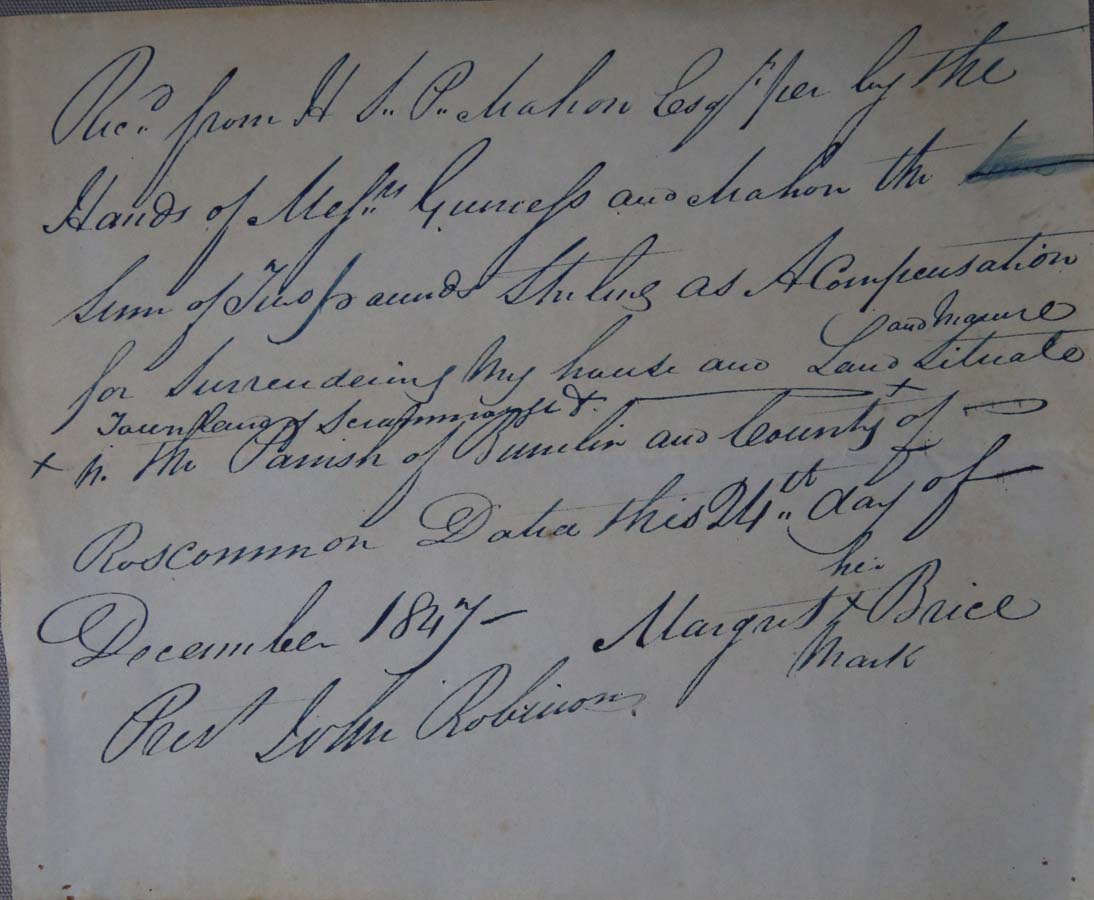 Recd. from H S. P. Mahon Esqr. per by the
Hands of Messrs Guiness and Mahon the
Sum of Two pounds Sterling as A Compensation
and Manure
for Surrendering My house and Land Situate
Townland of
x in the Parish of Bumlin and County x of
Roscommon Dated this 24th day of
her
December 1847 Margret x Brice
Mark
Prest John Robinson